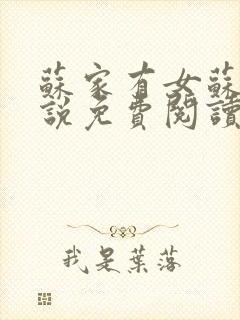 蘇家有女蘇
說免費閱讀
我是葉落